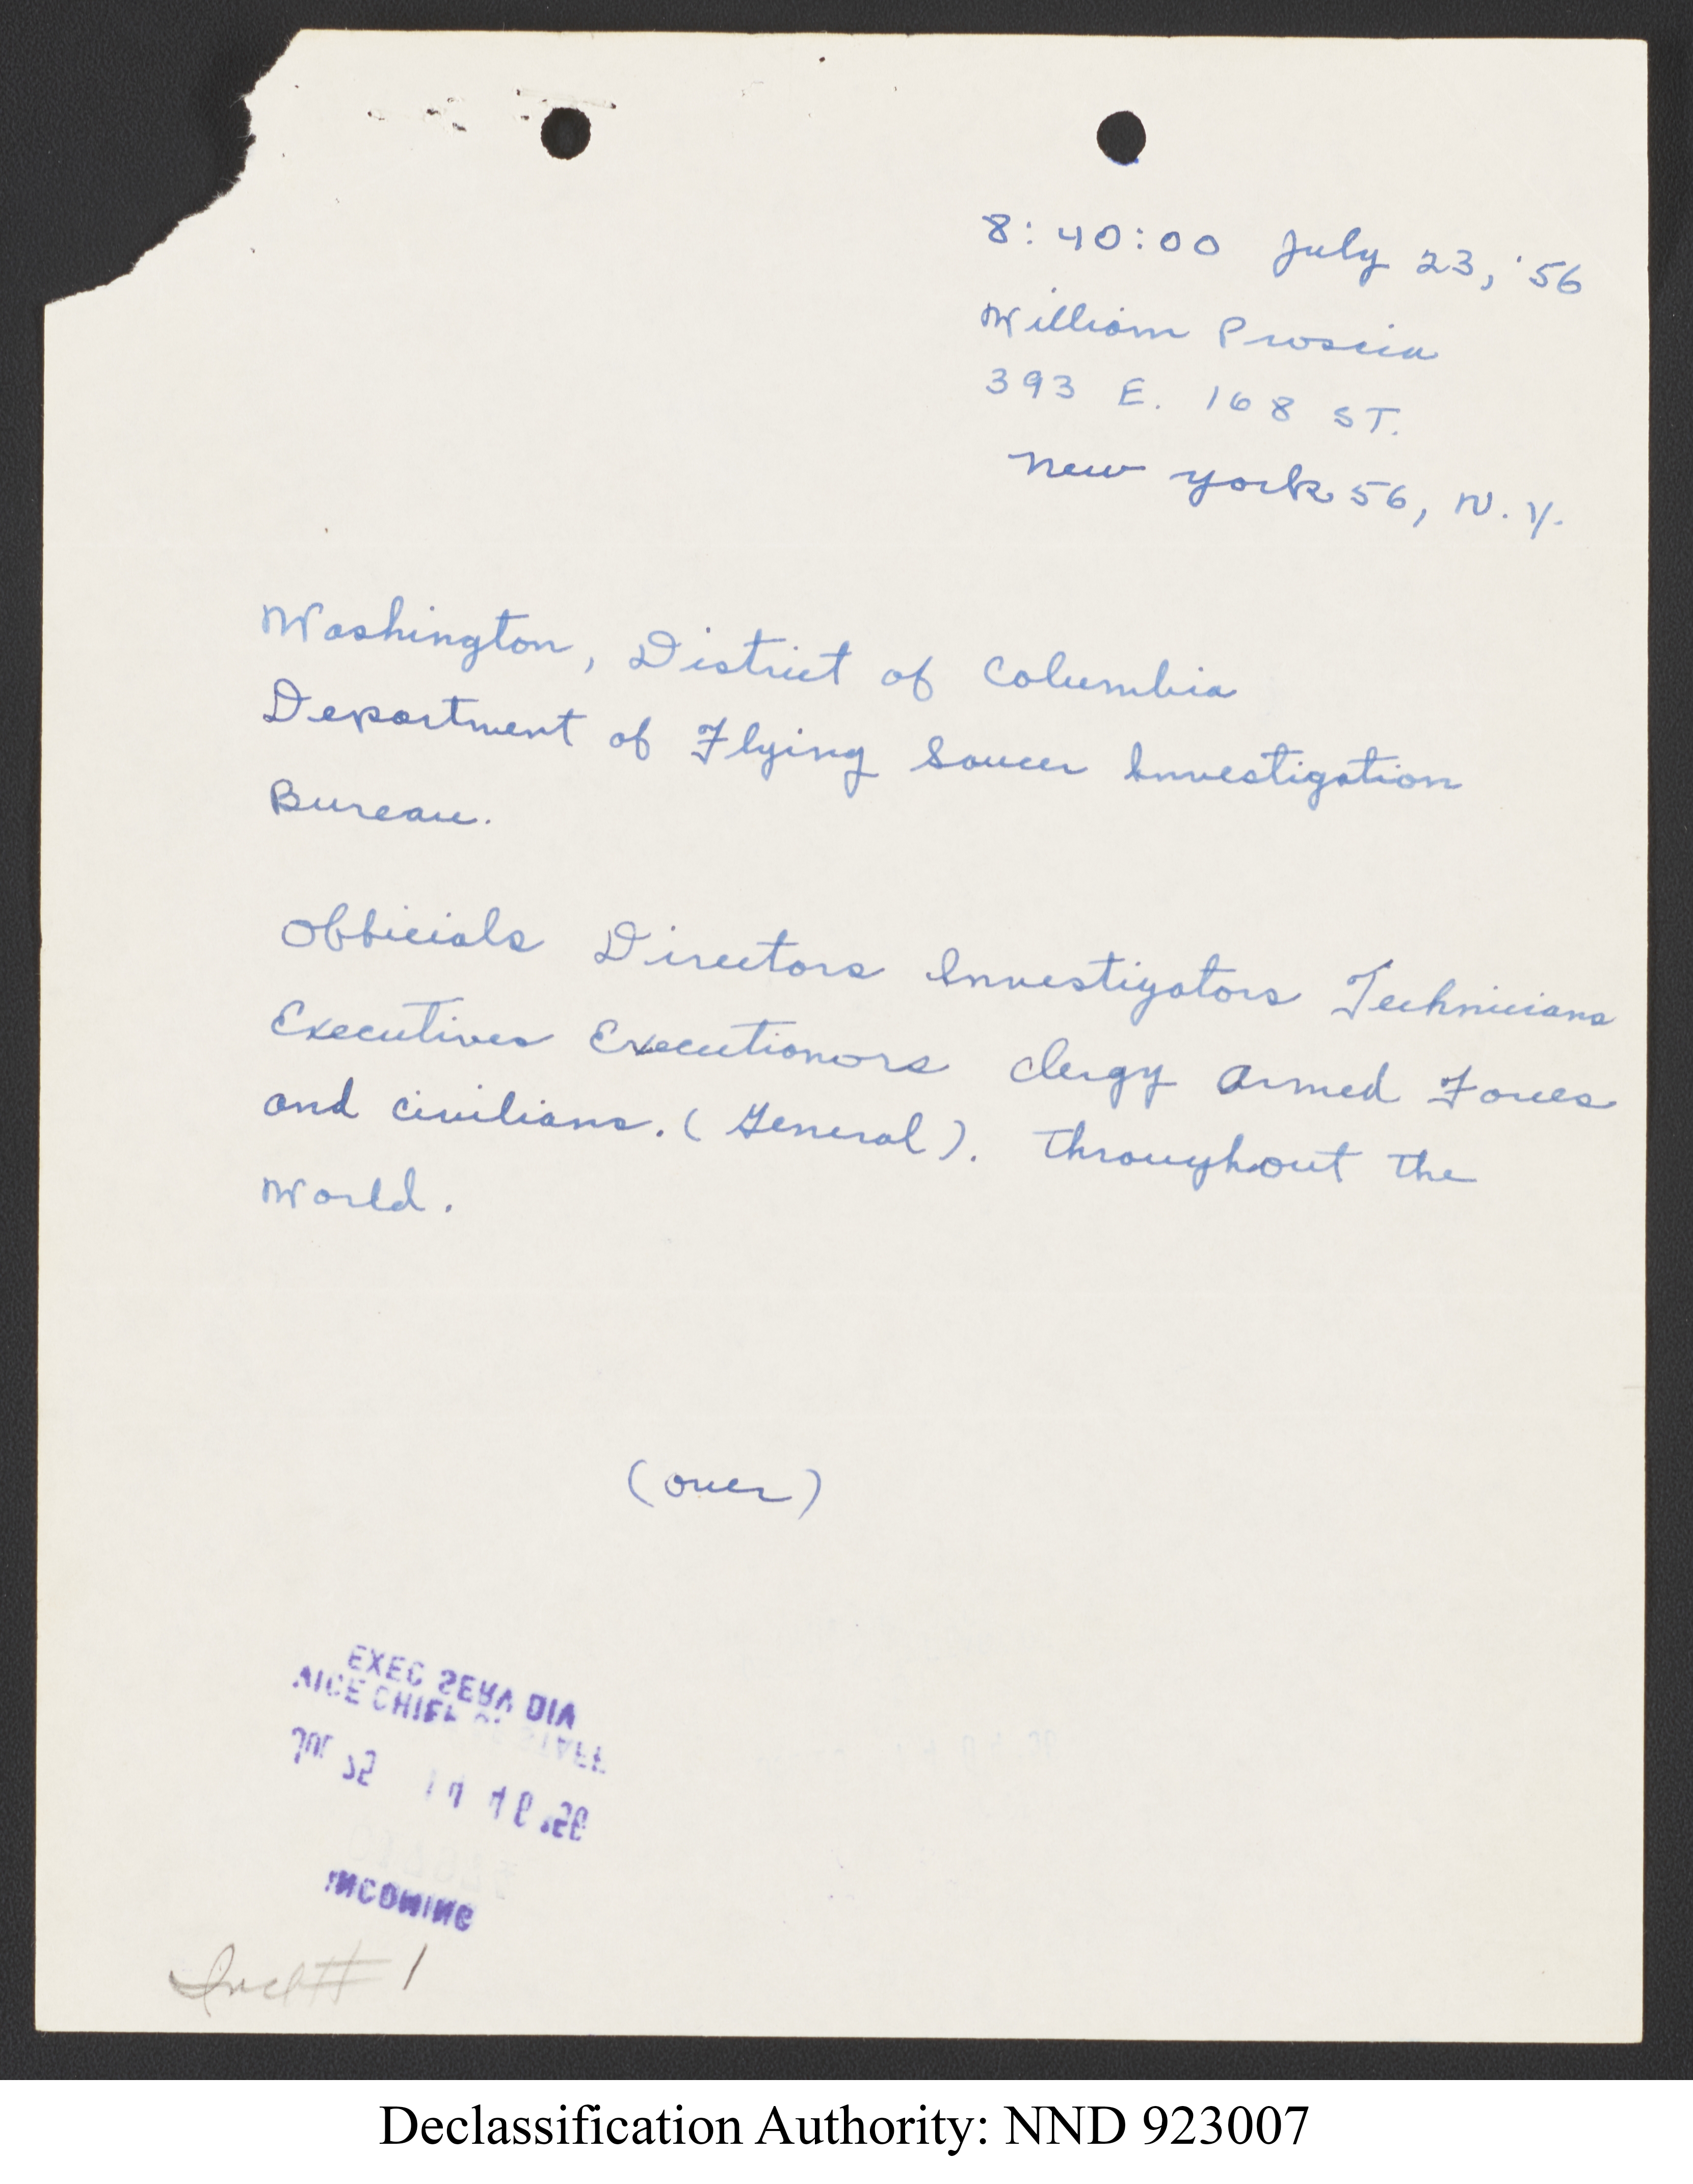 8:40:00 July 23, '56
William Proscia
393 E. 168 ST.
New York 56, N.Y.
Washington, District of Columbia
Department of Flying Saucer Investigation
Bureau.
Officials Directors Investigators Technicians
Executives Executionors Clergy Armed Forces
and civilians. (General). Throughout The
World.
(over)
EXEC SERV DIV
VICE CHIEF OF STAFF
INCOMING
Incl # 1
Declassification Authority: NND 923007